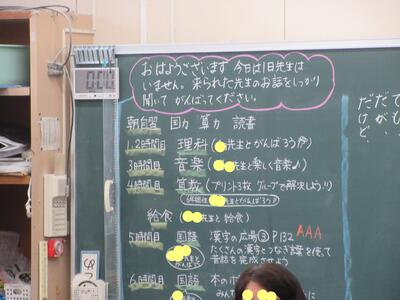 おはようございます 今日は1日先生は
いません。来られた先生のお話をしっかり
聞いて がんばってください。
朝自習 国力 算力 読書
1.2時間目 理科( 先生とがんばろう
3時間目 音楽 先生と楽しく音楽♪)
4時間目 算数(プリント3枚 グループで解決しよう!)
先生とがんばろう
給食 先生と給食)
5時間目 国語 漢字の広場③ P132 AAA
たくさんの漢字とつなぎ言葉を使って
昔話を完成させよう
先生と
がんばろう
6時間目 国語 本の